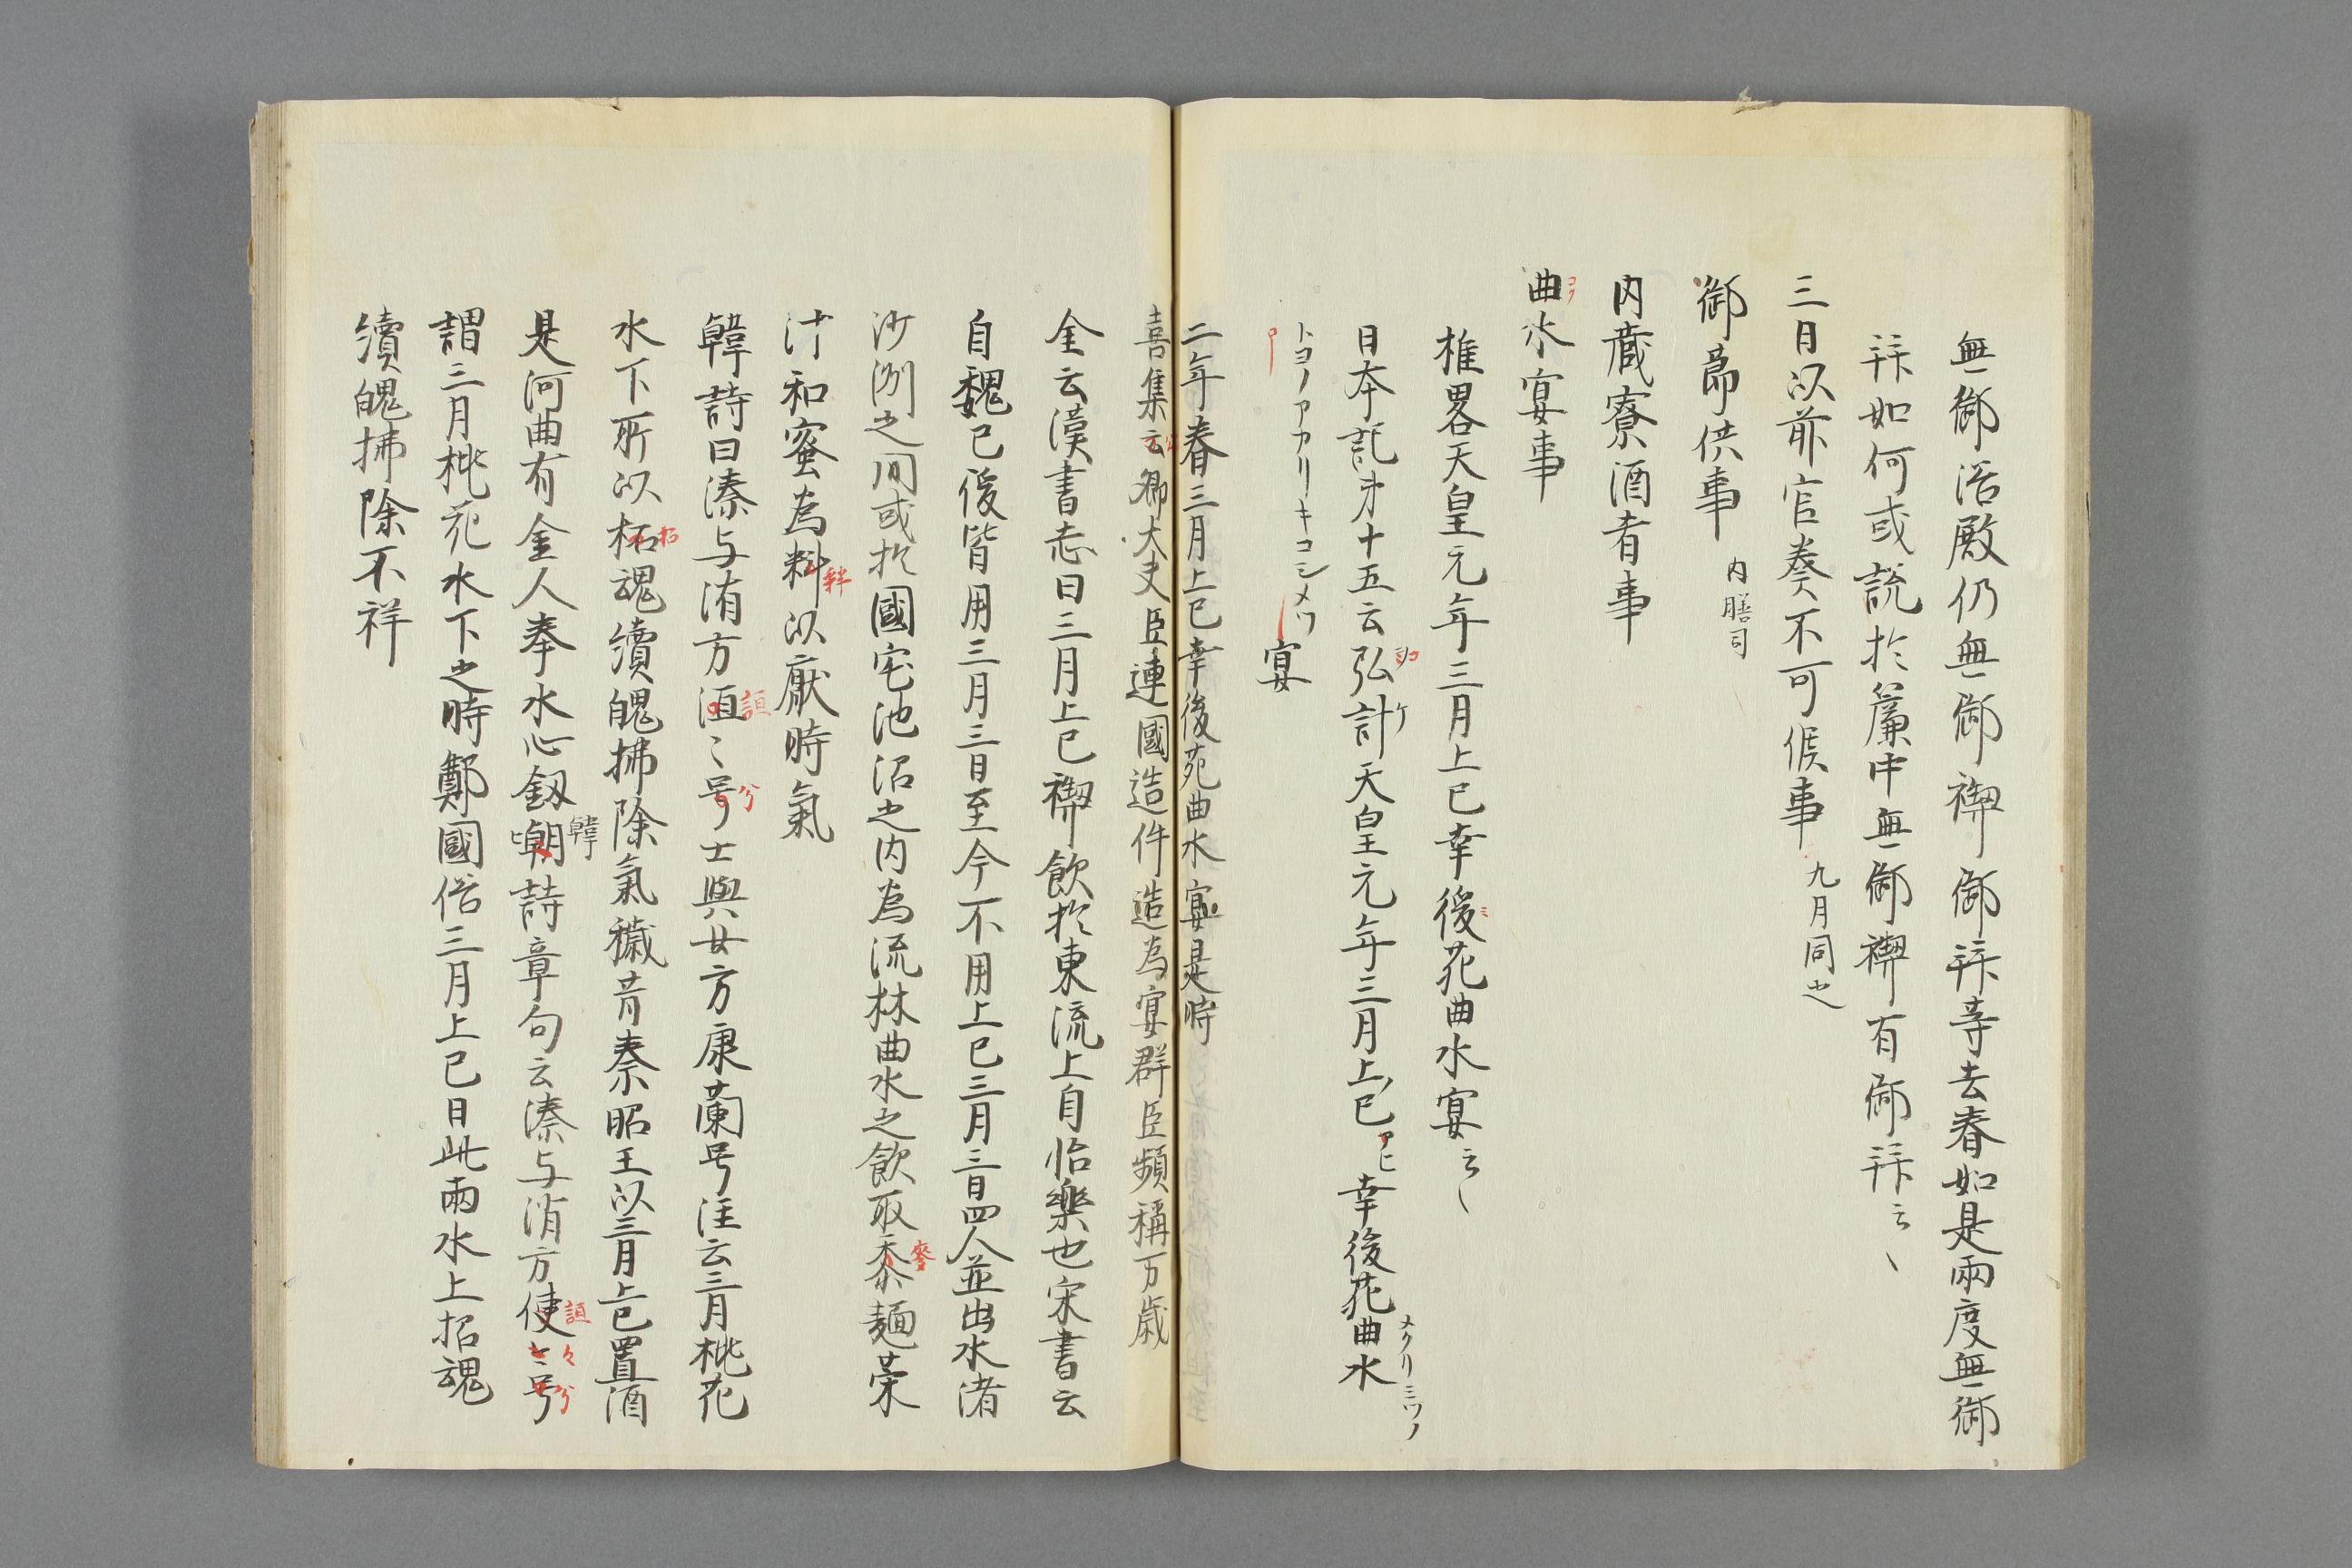 無御浴殿仍無御禊御拜等去春如是兩度無御
拜如何或説於簾中無御禊有御拜云〻
三日以前官奏不可候事 九月同也
御節供事 内膳司
内藏寮酒肴事
曲水宴事
稚畧天皇元年三月上巳幸後花曲水宴云〻
日本記才十五云弘計天皇元年三月上巳幸後花曲水
トヨノアカリキコシメツ宴
二年春三月上巳幸後苑曲水宴是時
喜集云卿大夫臣連國造伴造為宴群臣頻稱万歳
全云漢書志曰三月上巳禊飲於東流上自怡樂也宋書云
自魏已後皆用三月三日至今不用上巳三月三日四人並出水渚
沙洌之間或於國宅池沼之内為流杯曲水之飲取黍麺菜
汁和蜜為料以厭時氣
韓詩曰溱与洧方洹〻号士與女方康蘭号注云三月桃花
水下所以柘魂續魄拂除氣穢昔秦昭王以三月上巳置酒
是河曲有金人奉水心釼嘲詩章句云溱与消方使〻号
謂三月桃花水下之時鄭國俗三月上巳日此兩水上招魂
續魄拂除不祥